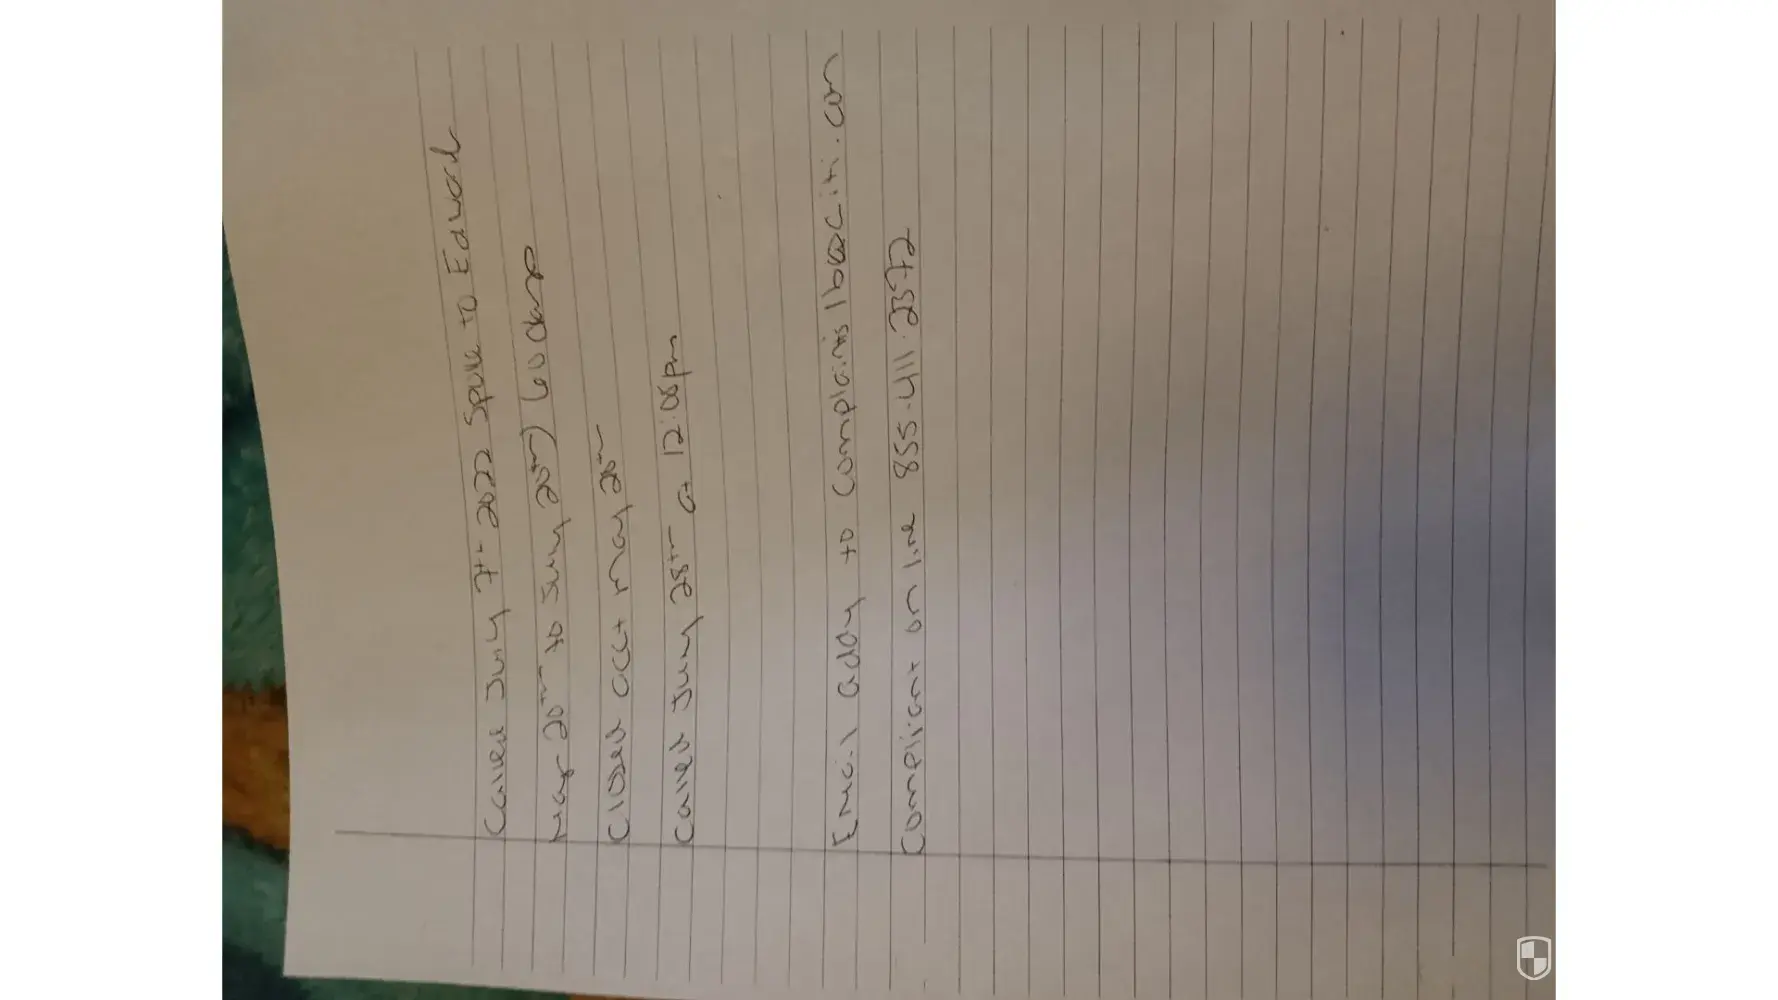 Called July 7th 2022 Spoke to Edward
May 20th to July 20th) 60 days
Closed acct May 20th
Called July 28th at 12:08pm
Email addy to Complaints1b@Citi.com
Compliant on line 855-411-2372